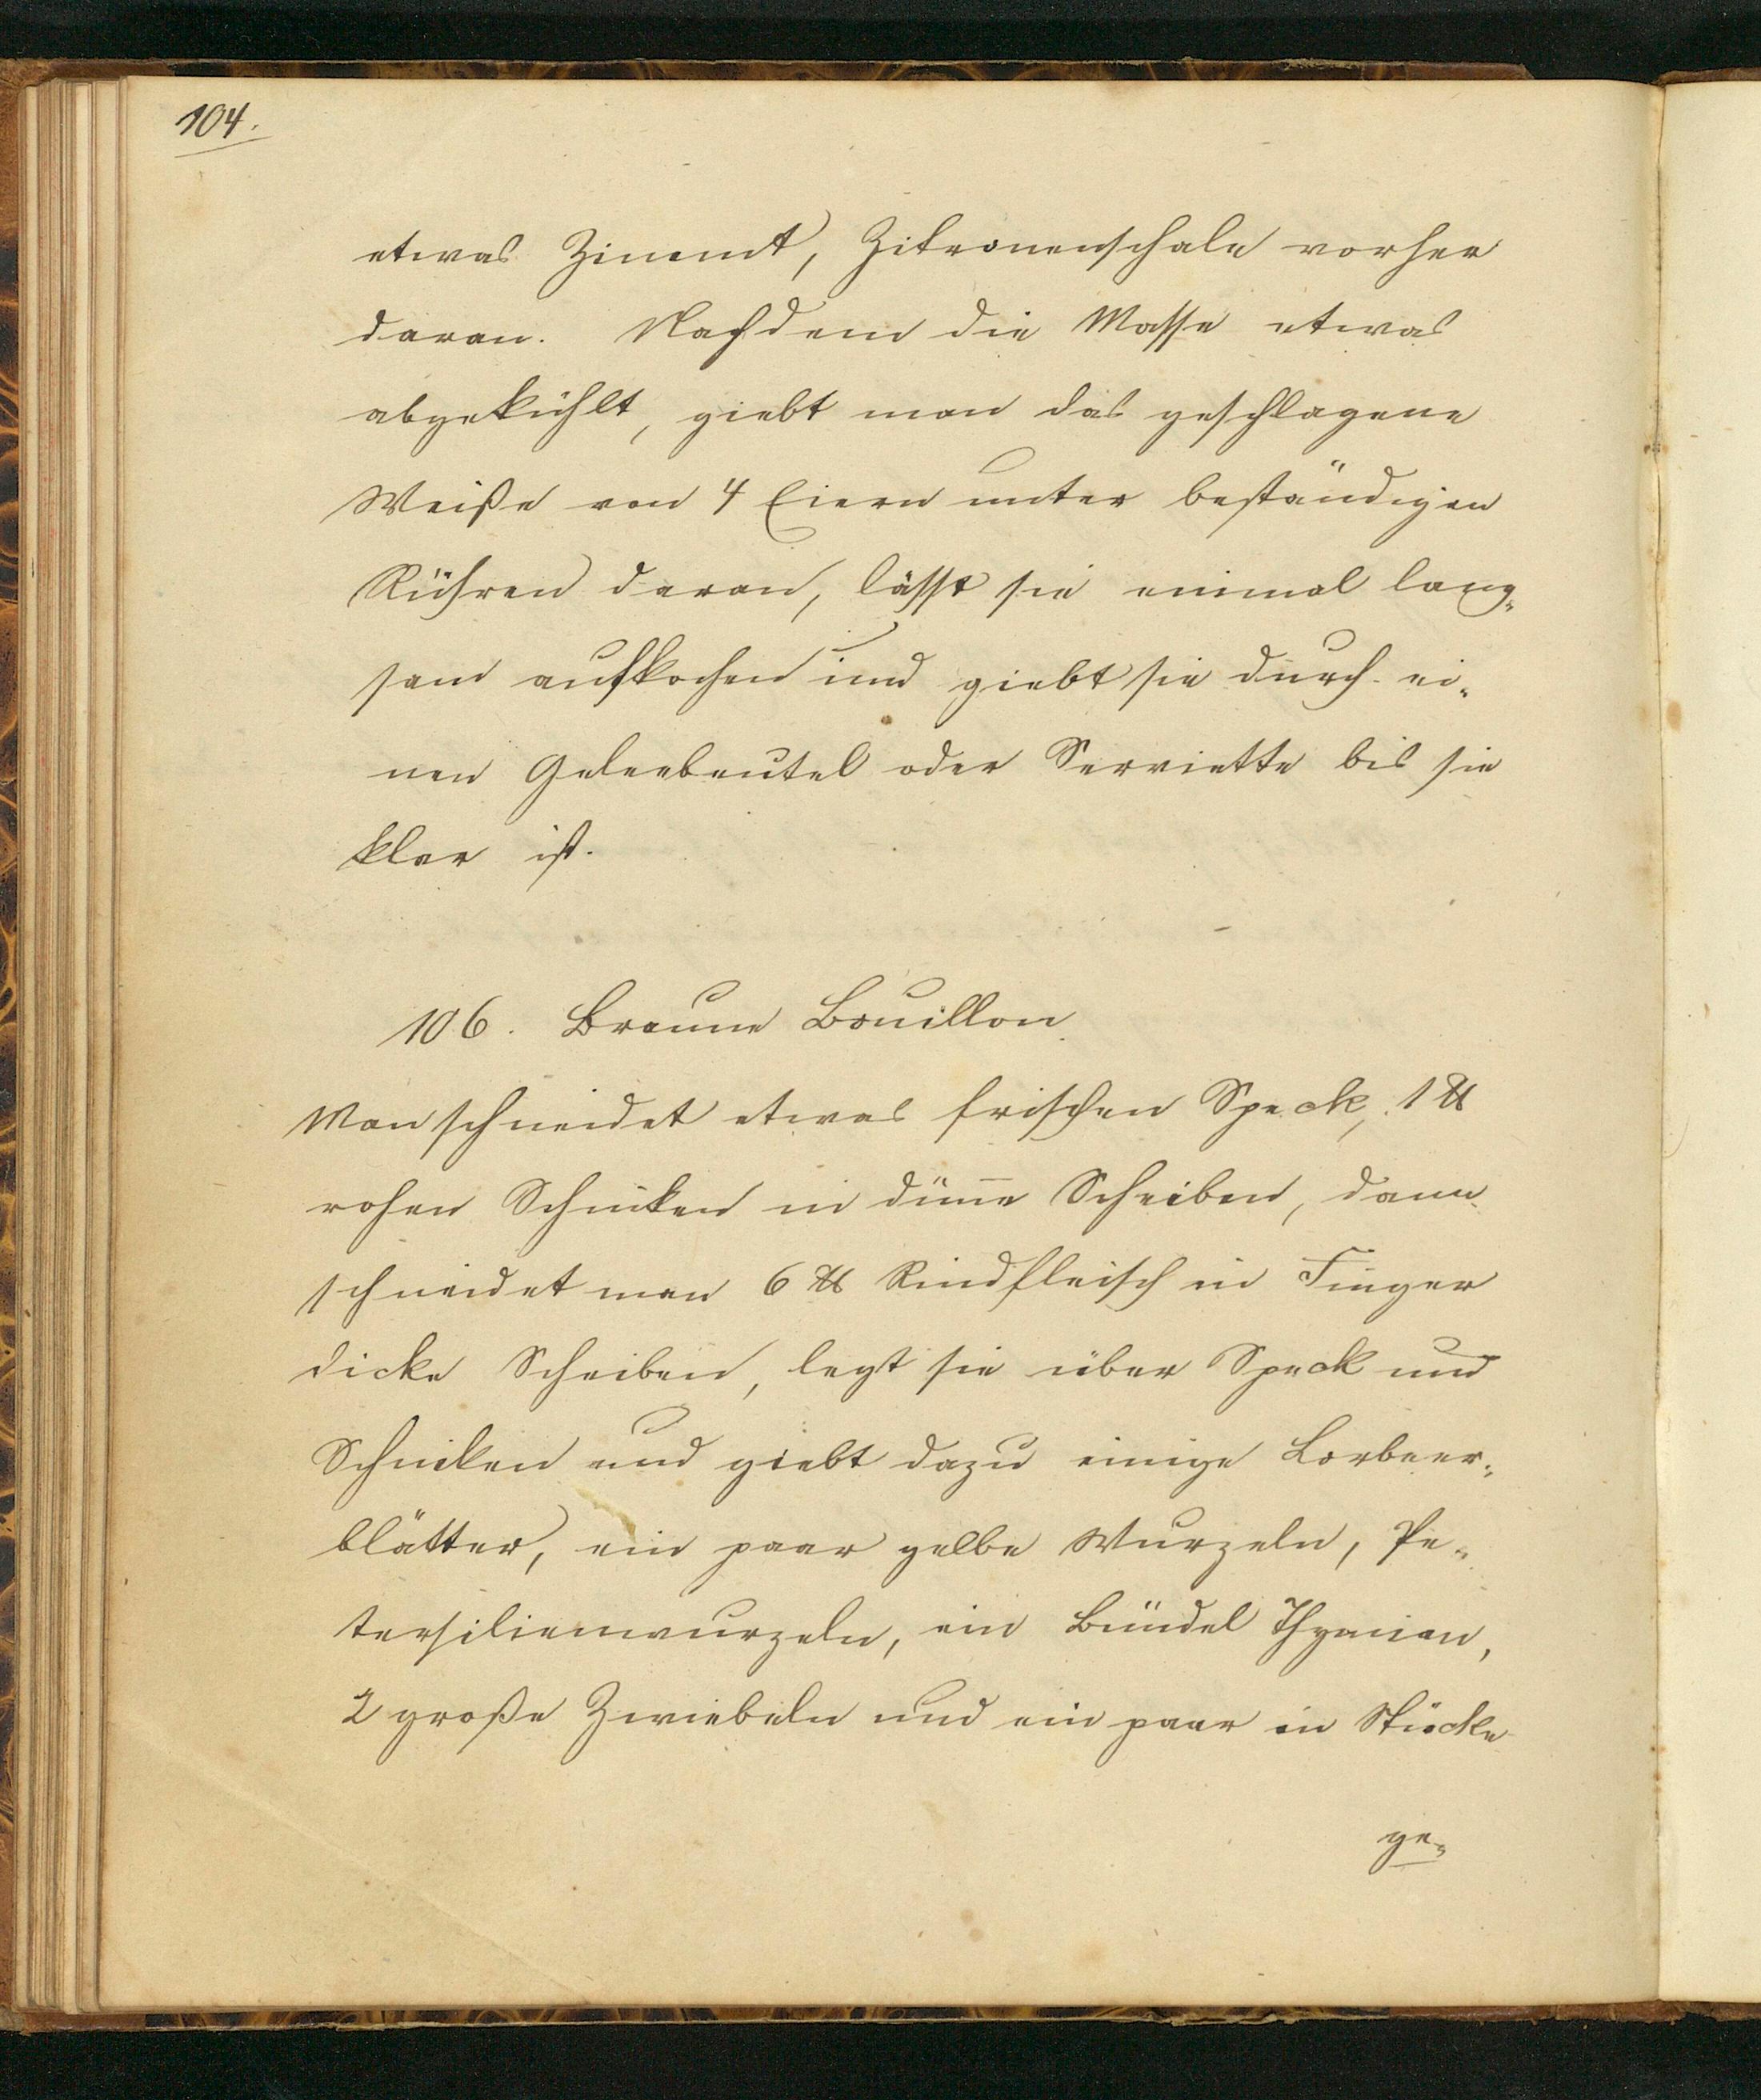 104.
etwas Zimmt, Zitronenschale vorher
daran. Nachdem die Masse etwas
abgekühlt, giebt man das geschlagene
Weiße von 4 Eiern unter beständigen
Rühren daran, lässt sie einmal lang„
sam aufkochen und giebt sie durch ei„
nen Geleebeutel oder Serviette bis sie
klar ist.
106. Braune Bouillon
Man schneidet etwas frischen Speck, 1 ℔
rohen Schinken in dün̄e Scheiben, dann
schneidet man 6 ℔ Rindfleisch in Finger
dicke Scheiben, legt sie über Speck und
Schinken und giebt dazu einige Lorbeer„
blätter, ein paar gelbe Wurzeln, Pe„
tersilienwurzeln, ein Bündel Thymian,
2 große Zwiebeln und ein paar in Stücke
ge„